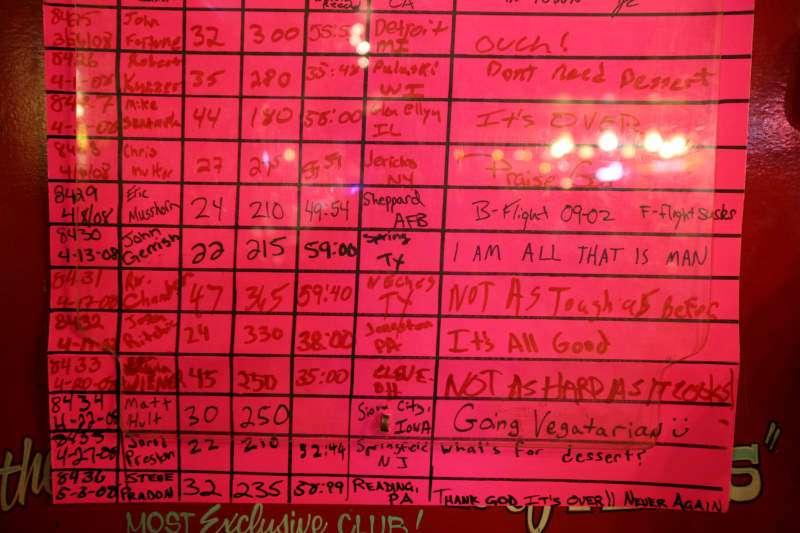 CA
8425 John Detroit
3/26/08 Fortune 32 300 MI OUCH!
8426 Robert Pulaski Dont Need Dessert
4-1-08 35 280 35:48 WI
8427 Mike Glen Ellyn It's OVER
44 180 58:00 IL
Chris Jericho Praise God
27 NY
8429 Eric Sheppard
4/8/08 24 210 49:54 AFB B-Flight 09-02 F-flight Sucks
8430 John Spring
4-13-08 Gerrish 22 215 59:00 TX I AM ALL THAT IS MAN
8431 Rw. Neches
47 365 59:40 TX NOT AS Tough as Before
8432 Josh Johnstown
24 330 38:00 PA It's All Good
8433 CLEVE-
4-20-08 WIENER 45 250 35:00 OH NOT AS HARD AS IT LOOKS!
8434 Matt Sioux City,
4-22-08 Hult 30 250 IOWA Going Vegatarian
8435 Jarol Springfield What's for dessert?
4-27-08 Preston 22 210 32:44 NJ
8436 STEVE READING,
5-3-08 PRADON 32 235 58:99 PA THANK GOD IT'S OVER!! NEVER AGAIN
the
MOST Exclusive CLUB!